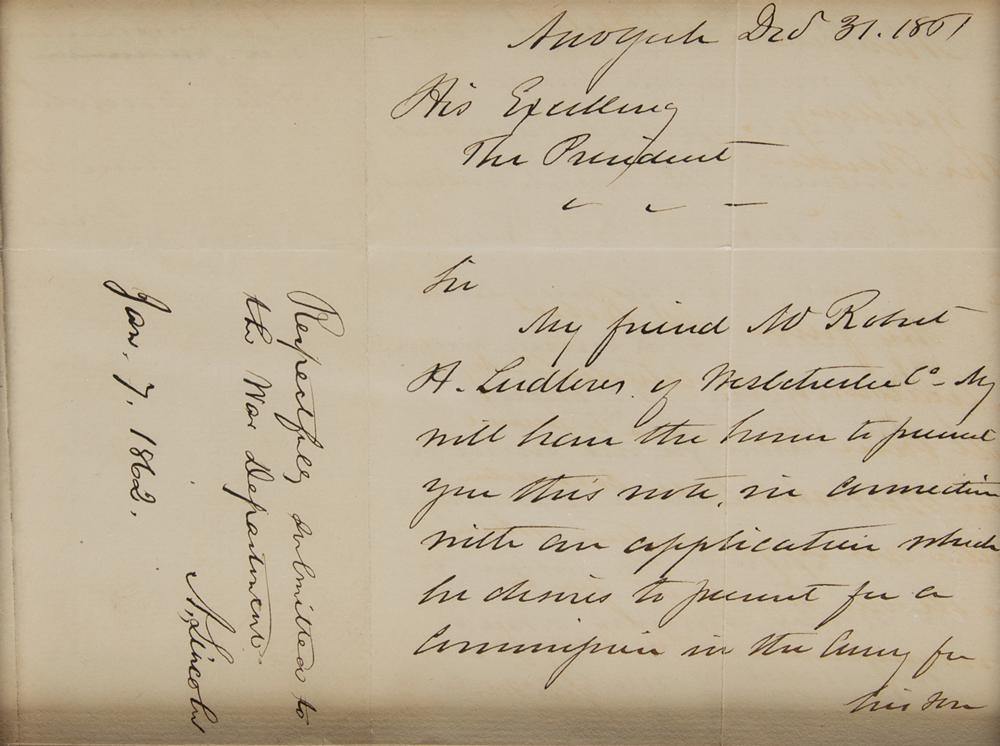 New York Decr 31. 1861
His Excellency
The President
Sir
My friend Mr Robert
H. Ludlow. of Westchester Co. Ny
will have the honor to present
you this note, in connection
with an application which
he desires to present for a
Commission in the Army for
his son
Respectfully submitted to
the War Department.
A. Lincoln
Jan. 7. 1862.